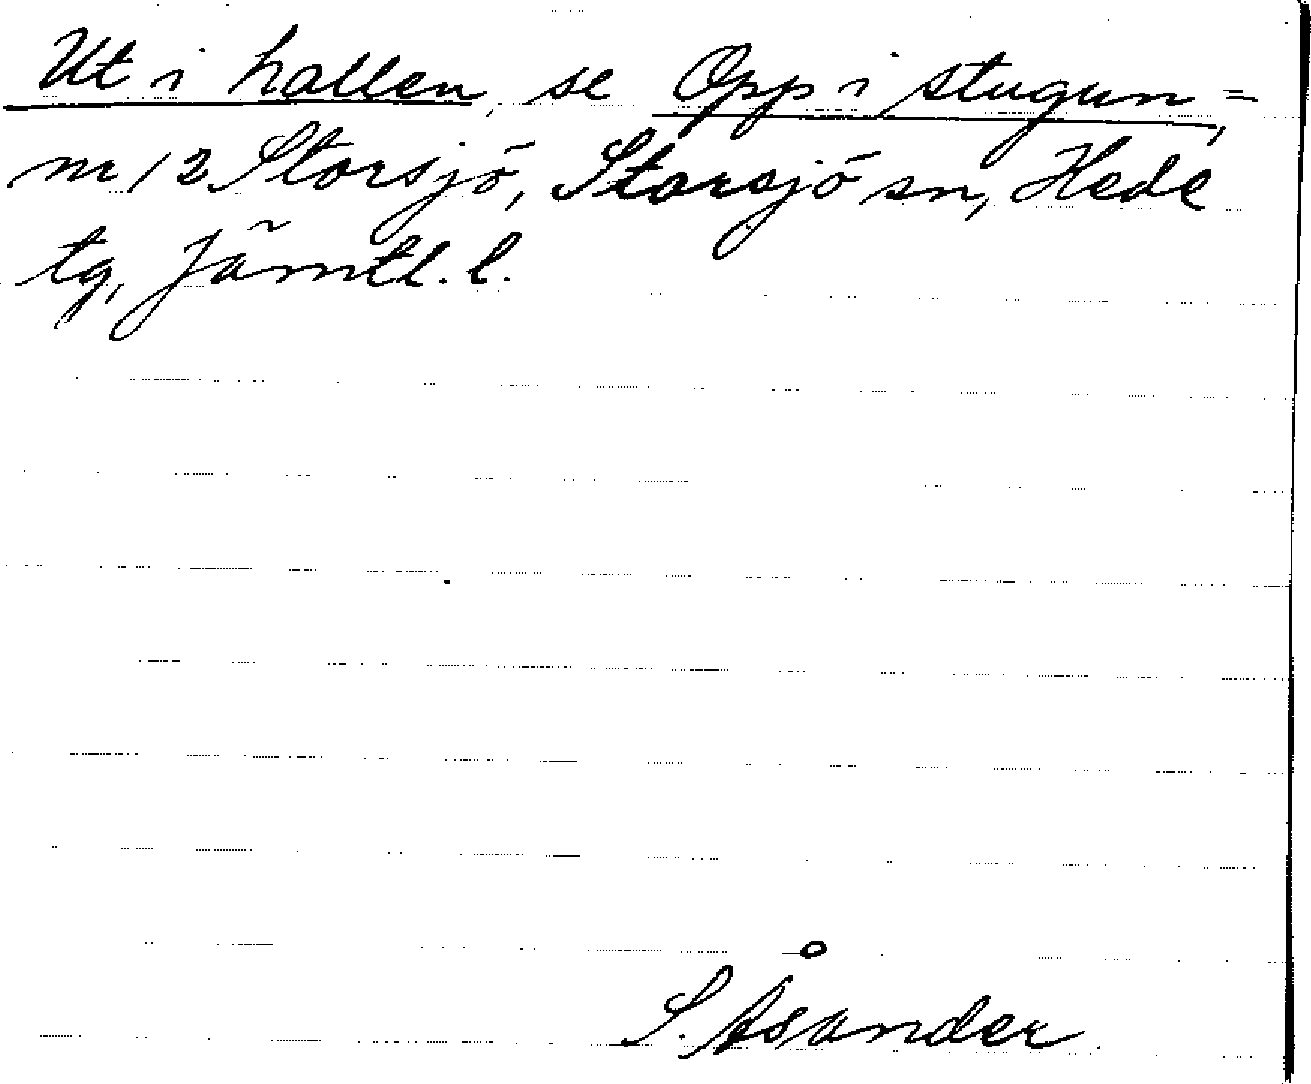 Ut i hallen, se Opp i stugun, =
nr 12 Storsjö, Storsjö sn, Hede
tg, Jämtl. l.
S. Åsander